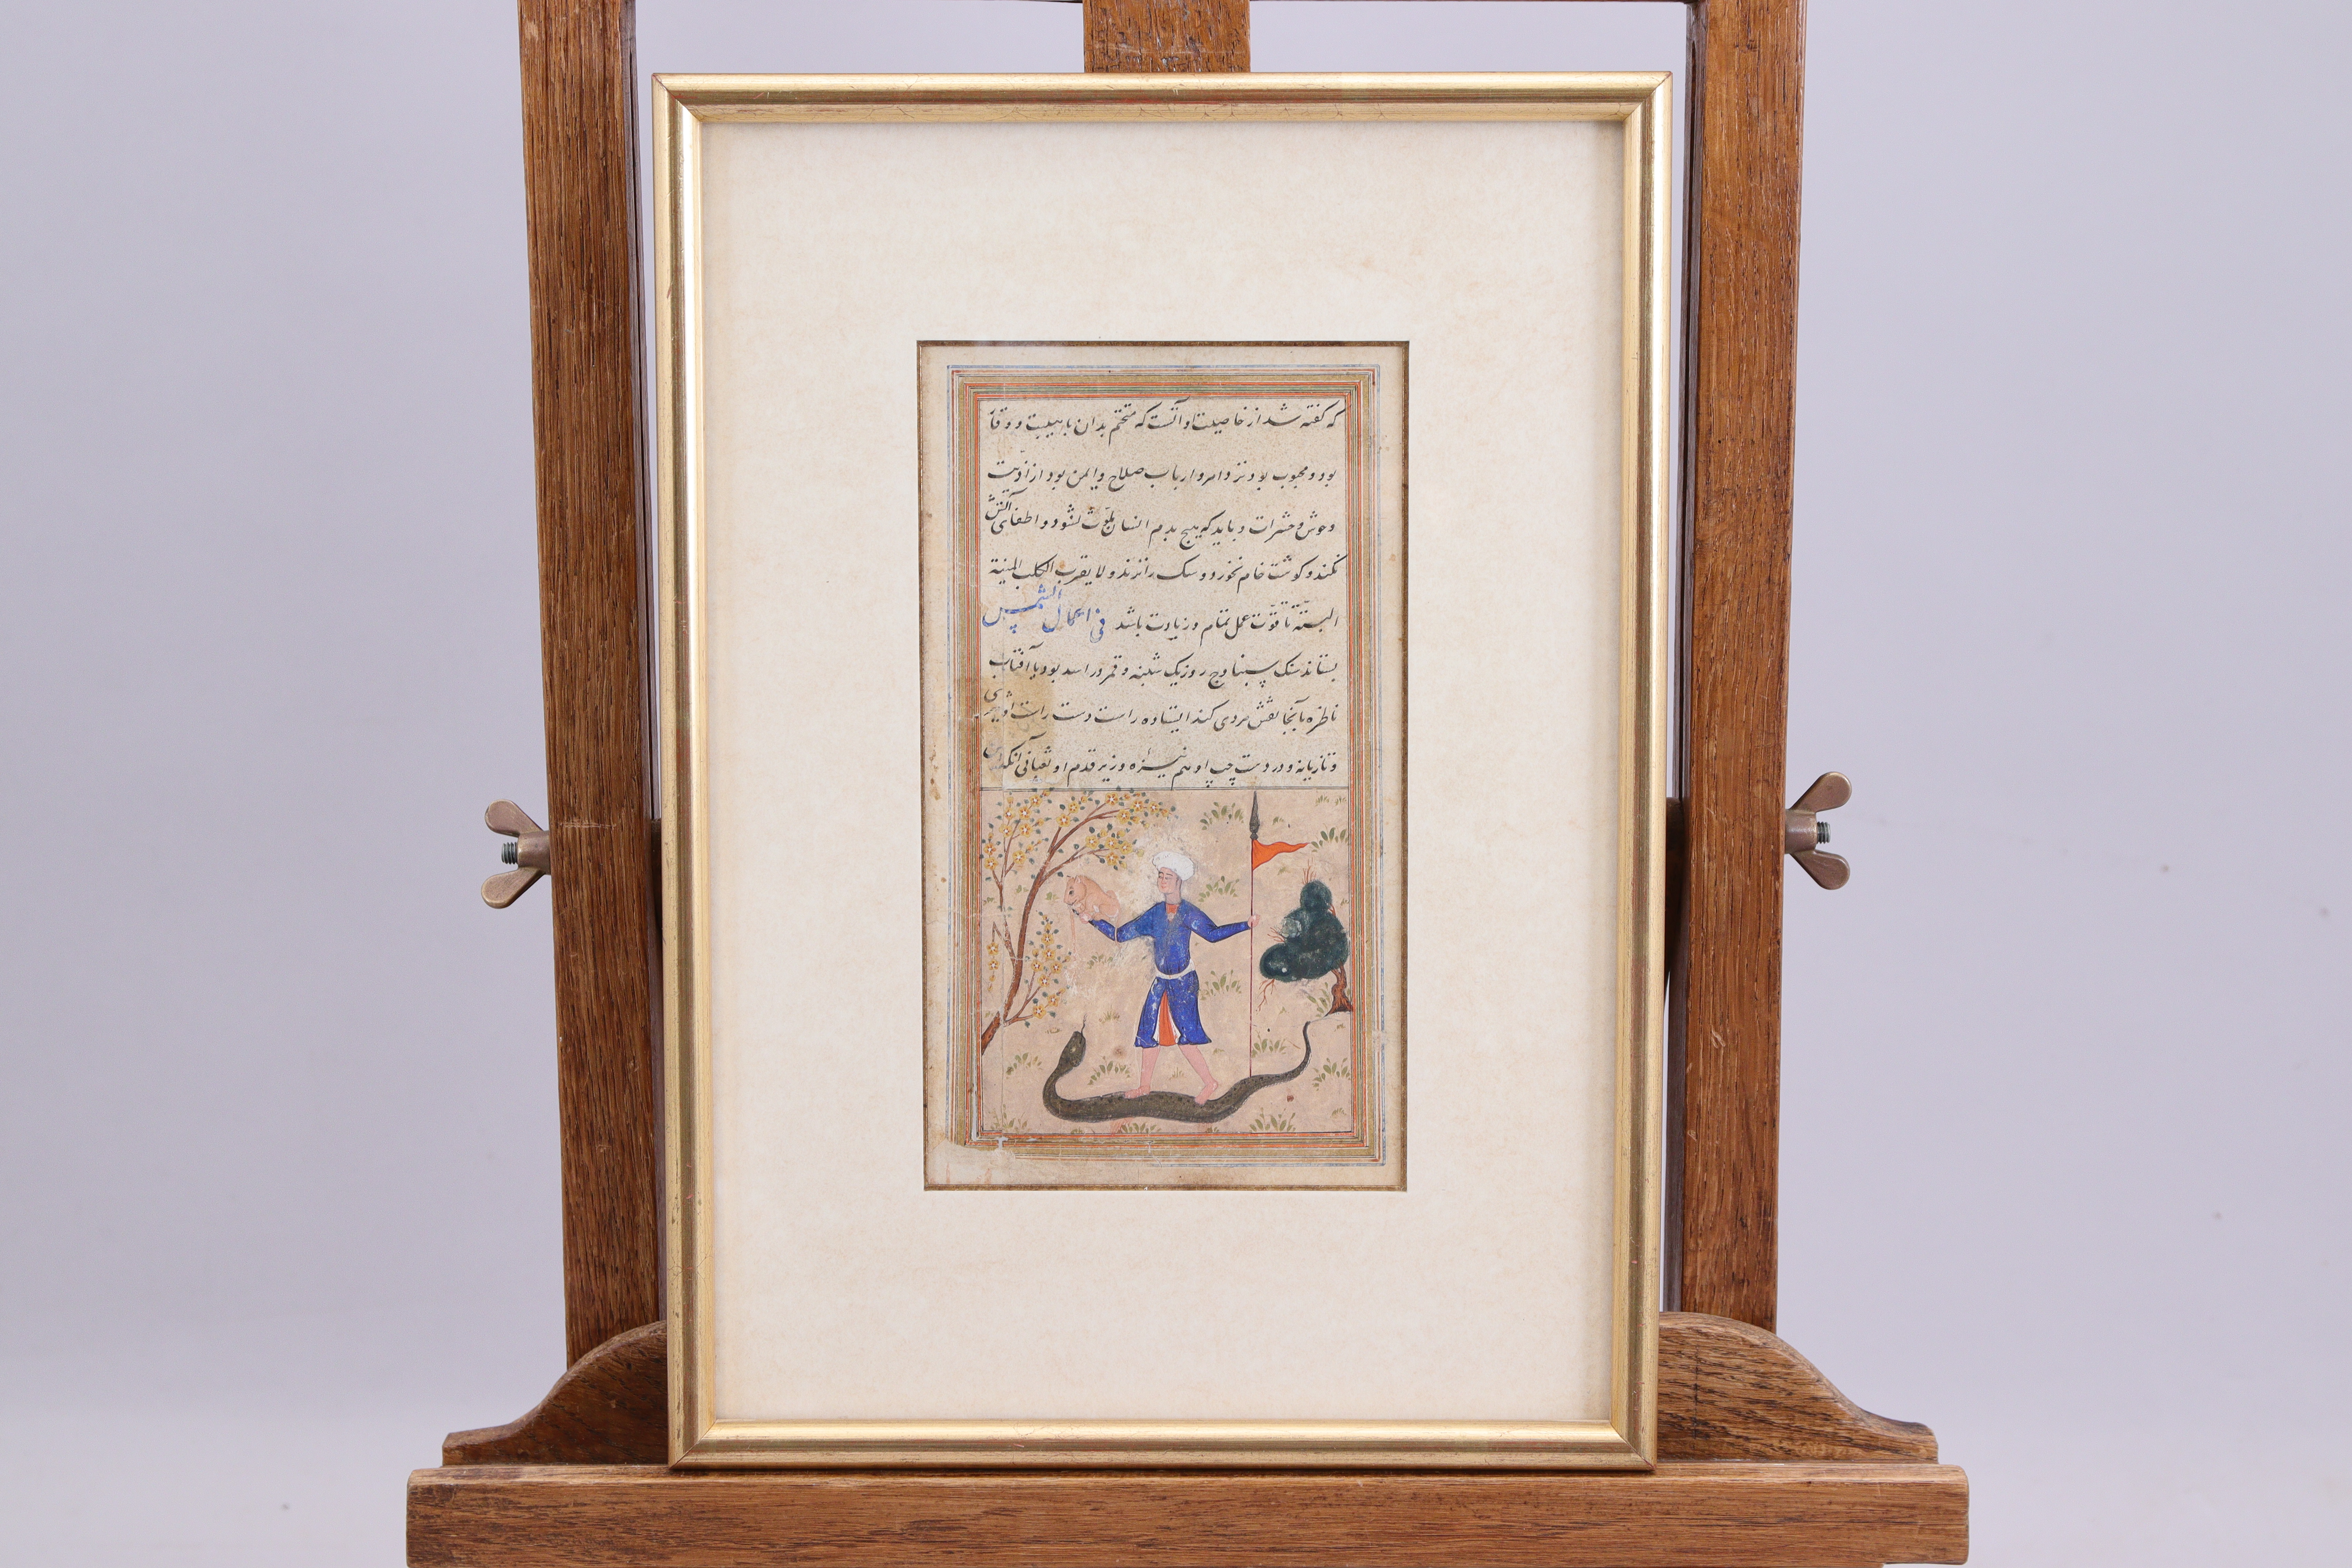 که گفته شد از خاصیت او آنست که متختم بدان با هیبت و وقار
بود و محبوب بود نزد امرا و ارباب صلاح و ایمن بود از اذیت
وحوش و حشرات و باید که هیچ بدم انسان ملوث نشود و اطفای آتش
نکند و کوشت خام نخورد و سک را نزند و لا یقرب الکلب المیتة
البته تا قوت عمل تمام و زیادت باشد فی اعمال الشمس
بستاند سنک روز یک شنبه و قمر در اسد بود یا آفتاب
ناظر بآنجا نقش مردی کند ایستاده راست دست راست او
و تازیانه و در دست چپ او هم نیزه و زیر قدم او ثعبانی